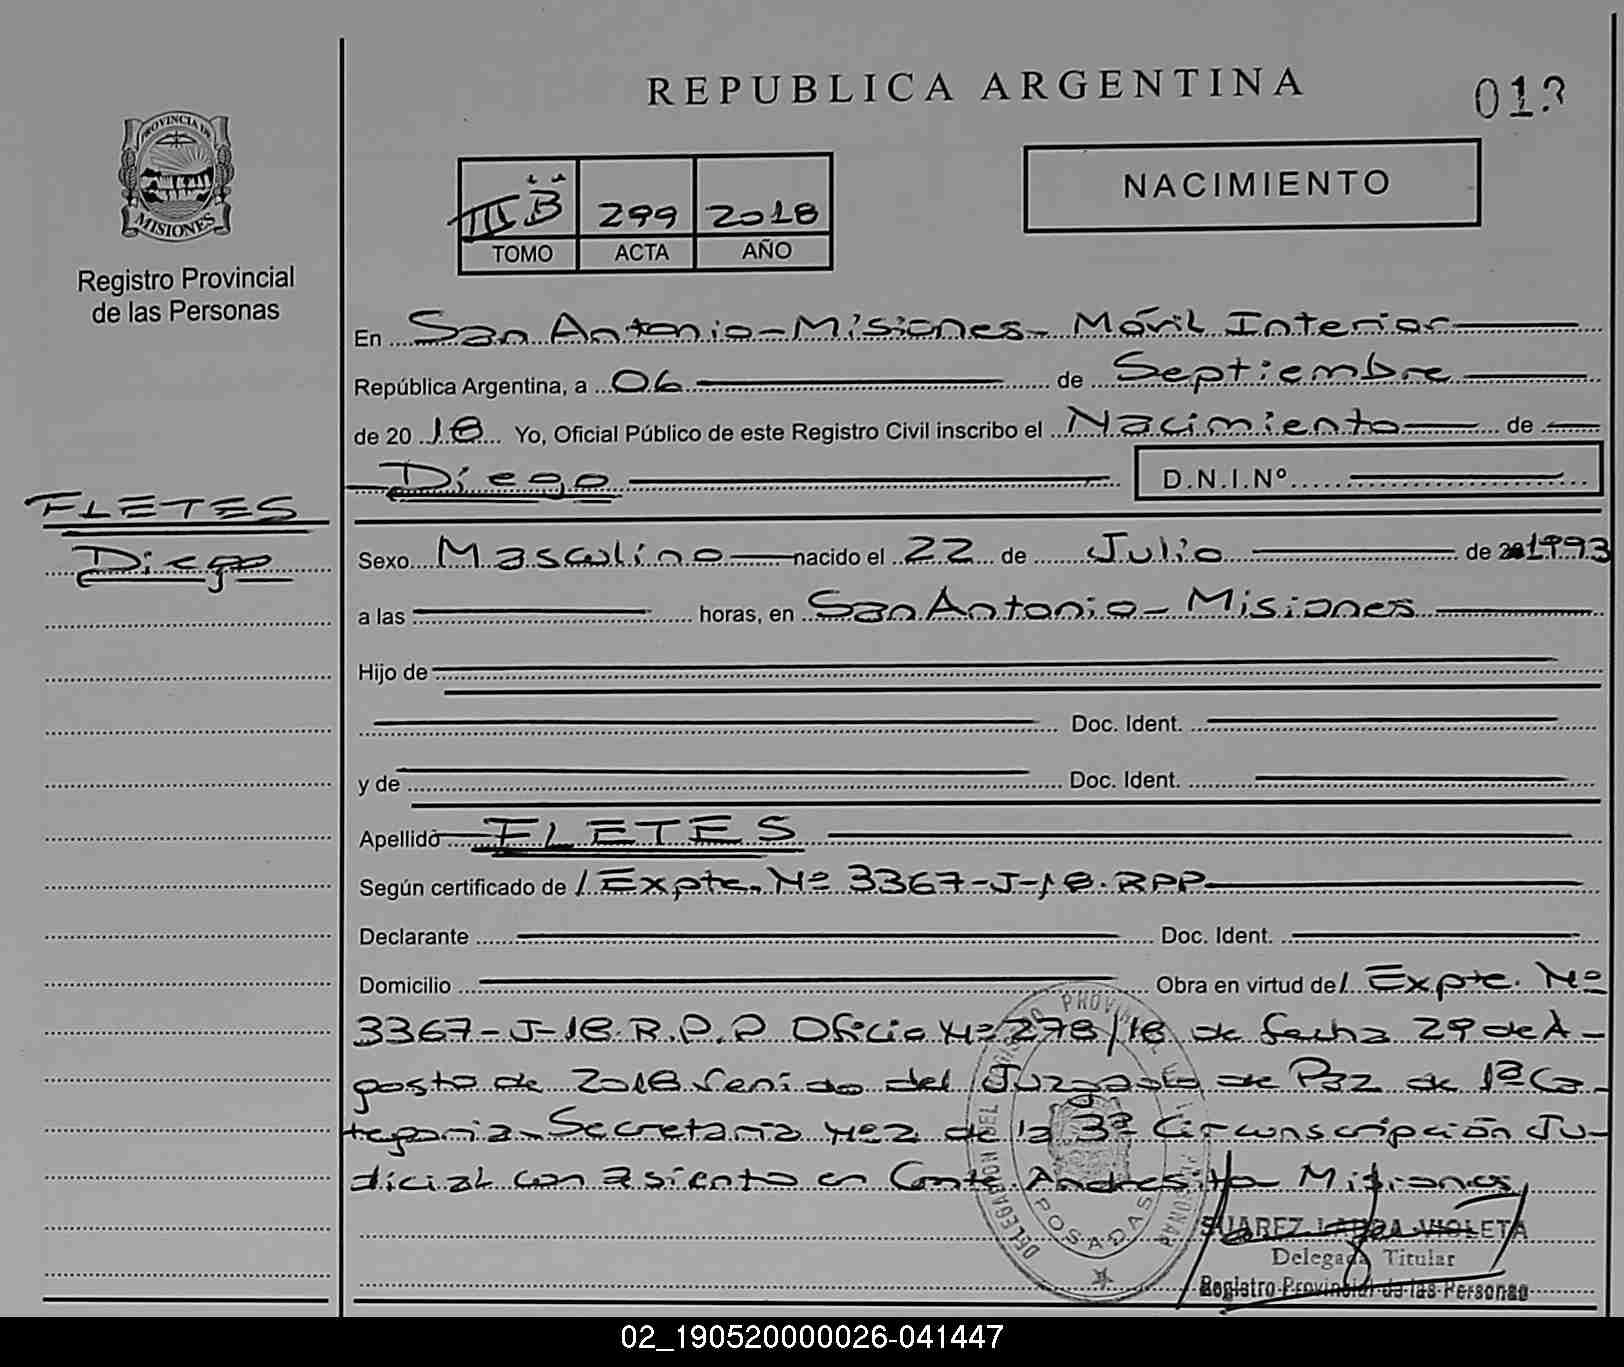 REPUBLICA ARGENTINA
013
PROVINCIA DE
MISIONES
Registro Provincial
de las Personas
III B 299 2018
TOMO ACTA AÑO
NACIMIENTO
En San Antonio - Misiones - Móvil Interior
República Argentina, a 06 de Septiembre
de 20 18 Yo, Oficial Público de este Registro Civil inscribo el Nacimiento de
Diego D.N.I.Nº
FLETES
Diego
Sexo Masculino nacido el 22 de Julio de 1993
a las horas, en San Antonio - Misiones
Hijo de
Doc. Ident.
y de Doc. Ident.
Apellido FLETES
Según certificado de / Expte. Nº 3367-J-18.RPP
Declarante Doc. Ident.
Domicilio Obra en virtud de / Expte. Nº
3367-J-18.R.P.P Oficio Nº 278/18 de fecha 29 de A-
gosto de 2018 Venido del Juzgado de Paz de 1ª Ca-
tegoria - Secretaria Nº 2 de la 3ª Circunscripción Ju-
dicial con asiento en Comte Andresito Misiones
DELEGACION DEL REGISTRO PROVINCIAL DE LAS PERSONAS
POSADAS
SUAREZ LAURA VIOLETA
Delegada Titular
Registro Provincial de las Personas
02_190520000026-041447